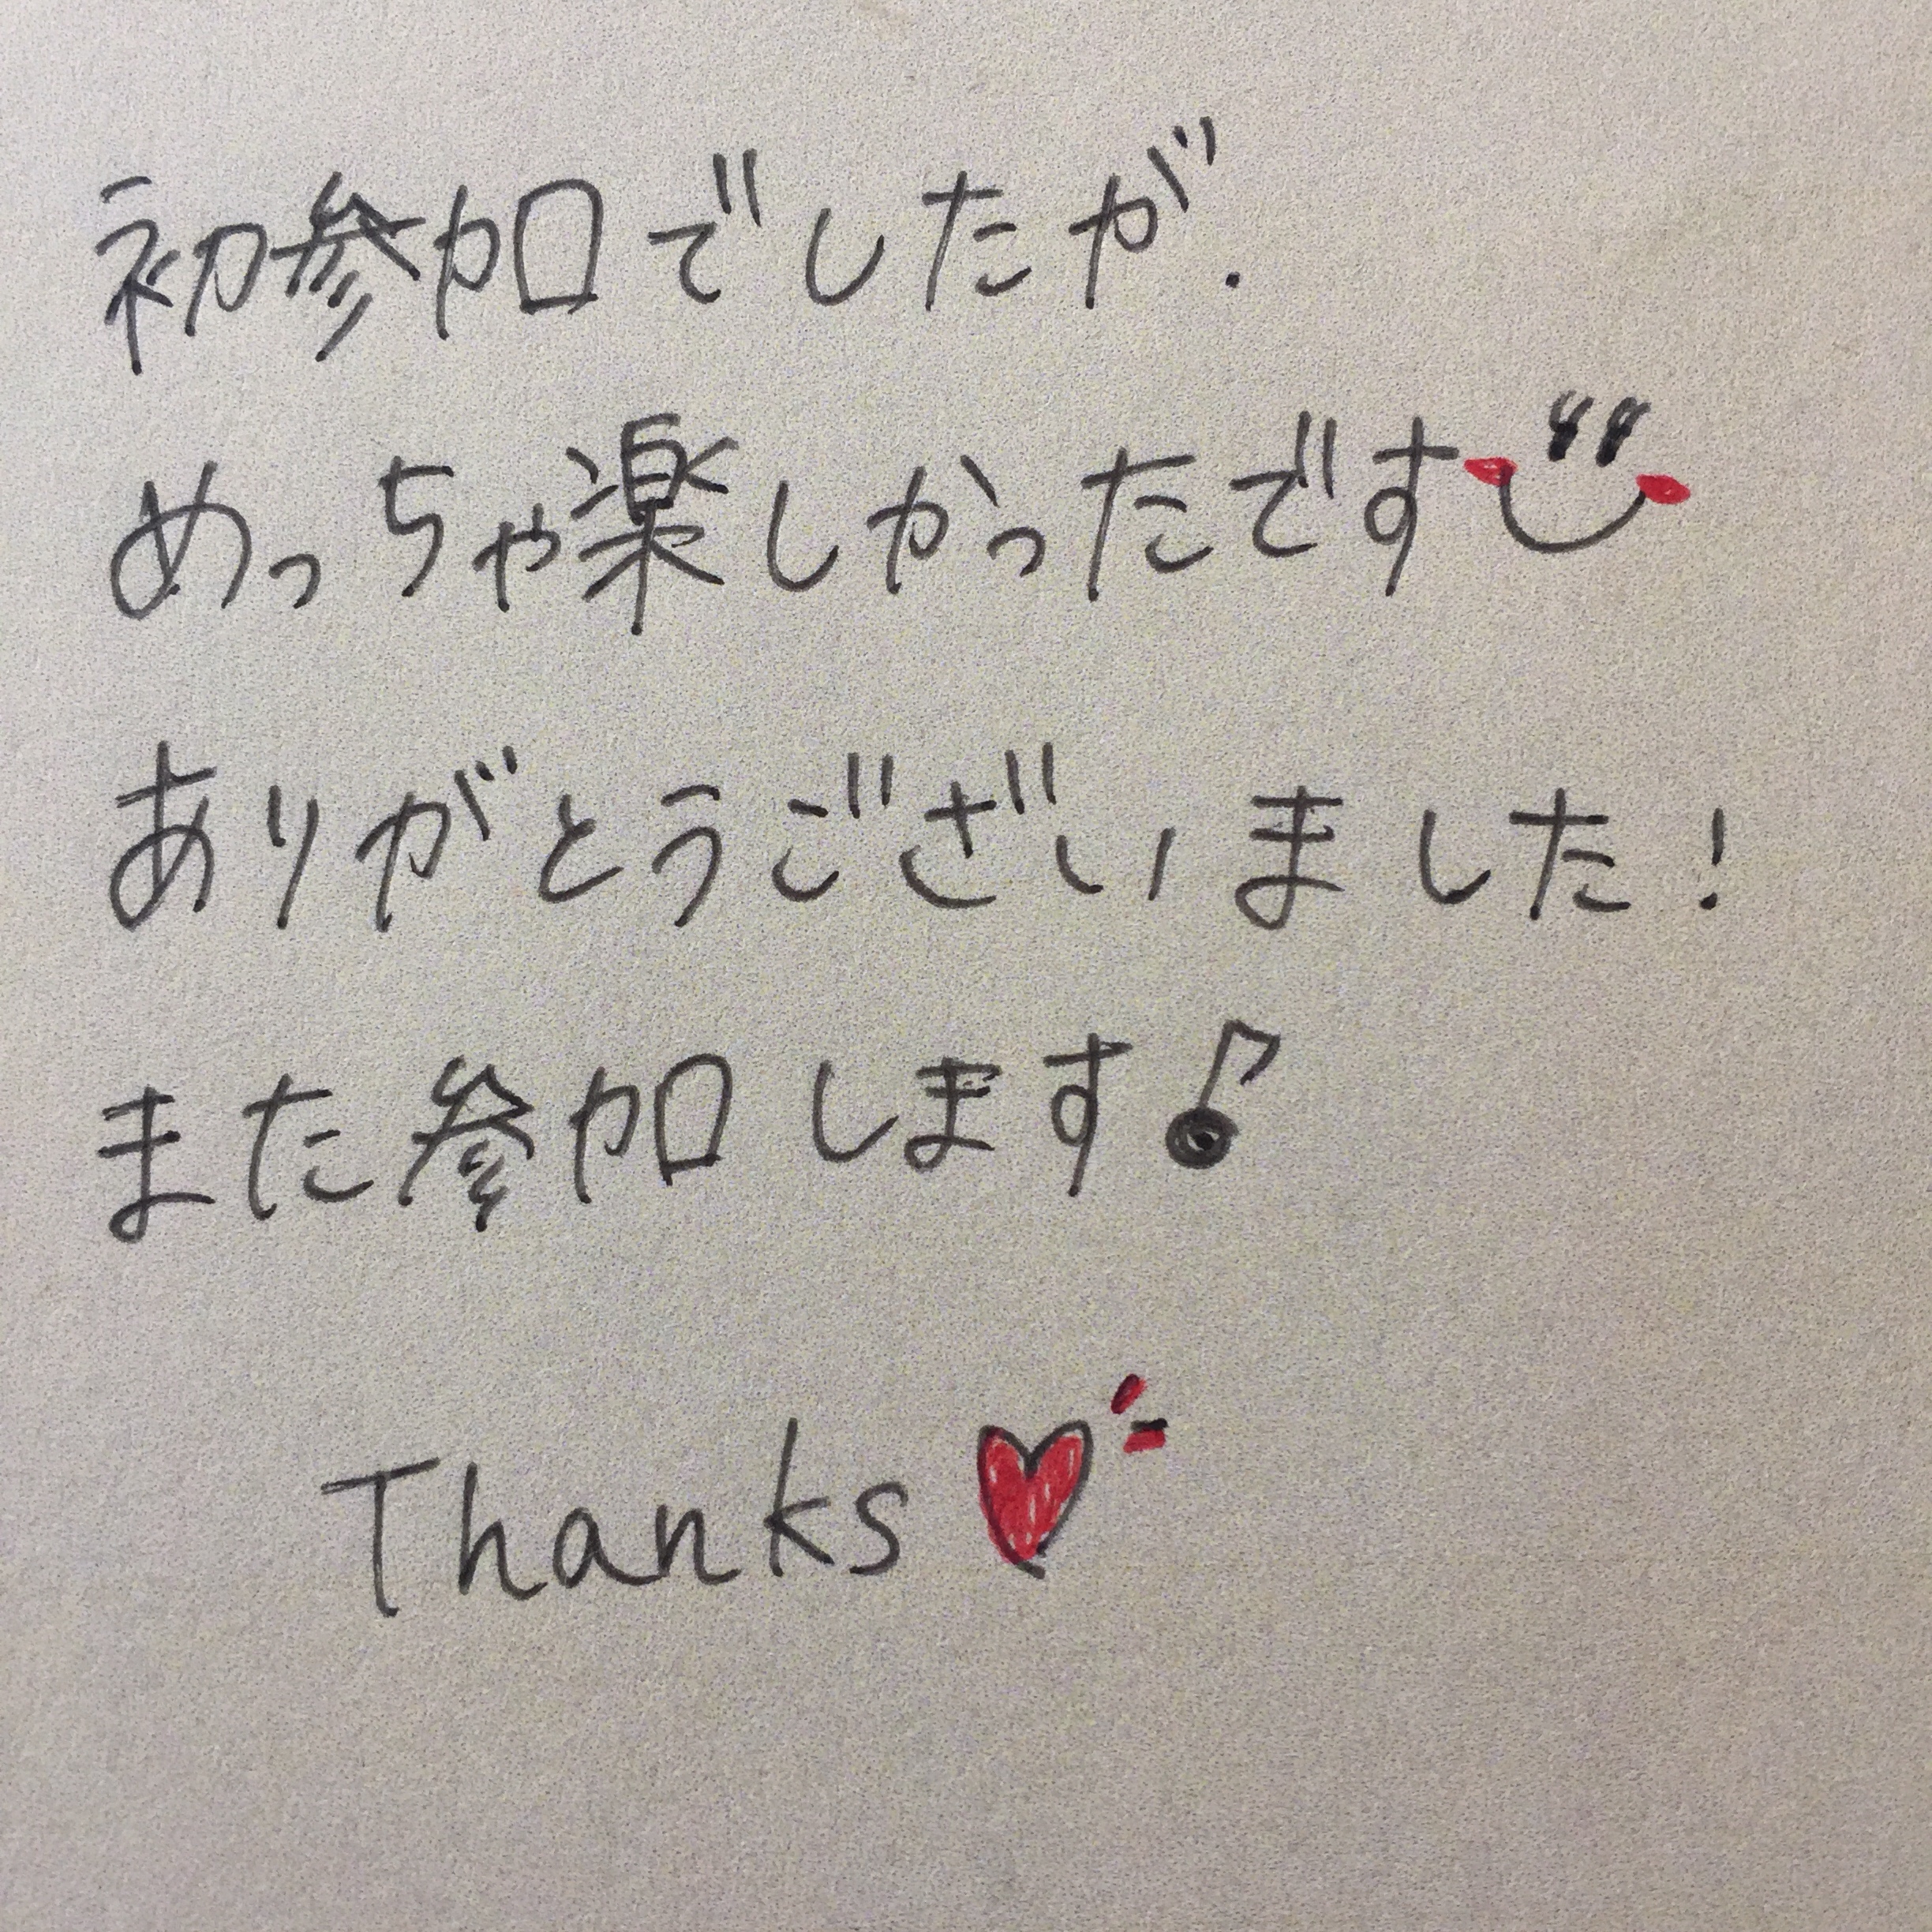 初参加でしたが.
めっちゃ楽しかったです
ありがとうございました!
また参加します♪
Thanks ♥